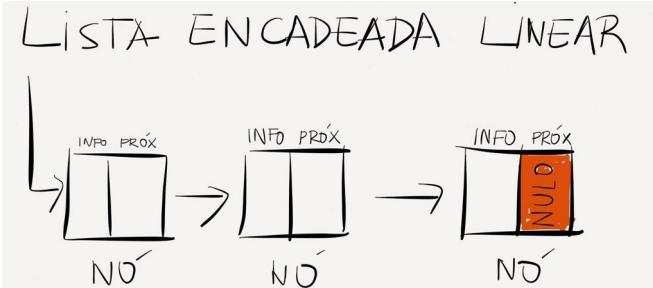 LISTA ENCADEADA LINEAR
INFO PRÓX INFO PRÓX INFO PRÓX
NULO
NÓ NÓ NÓ